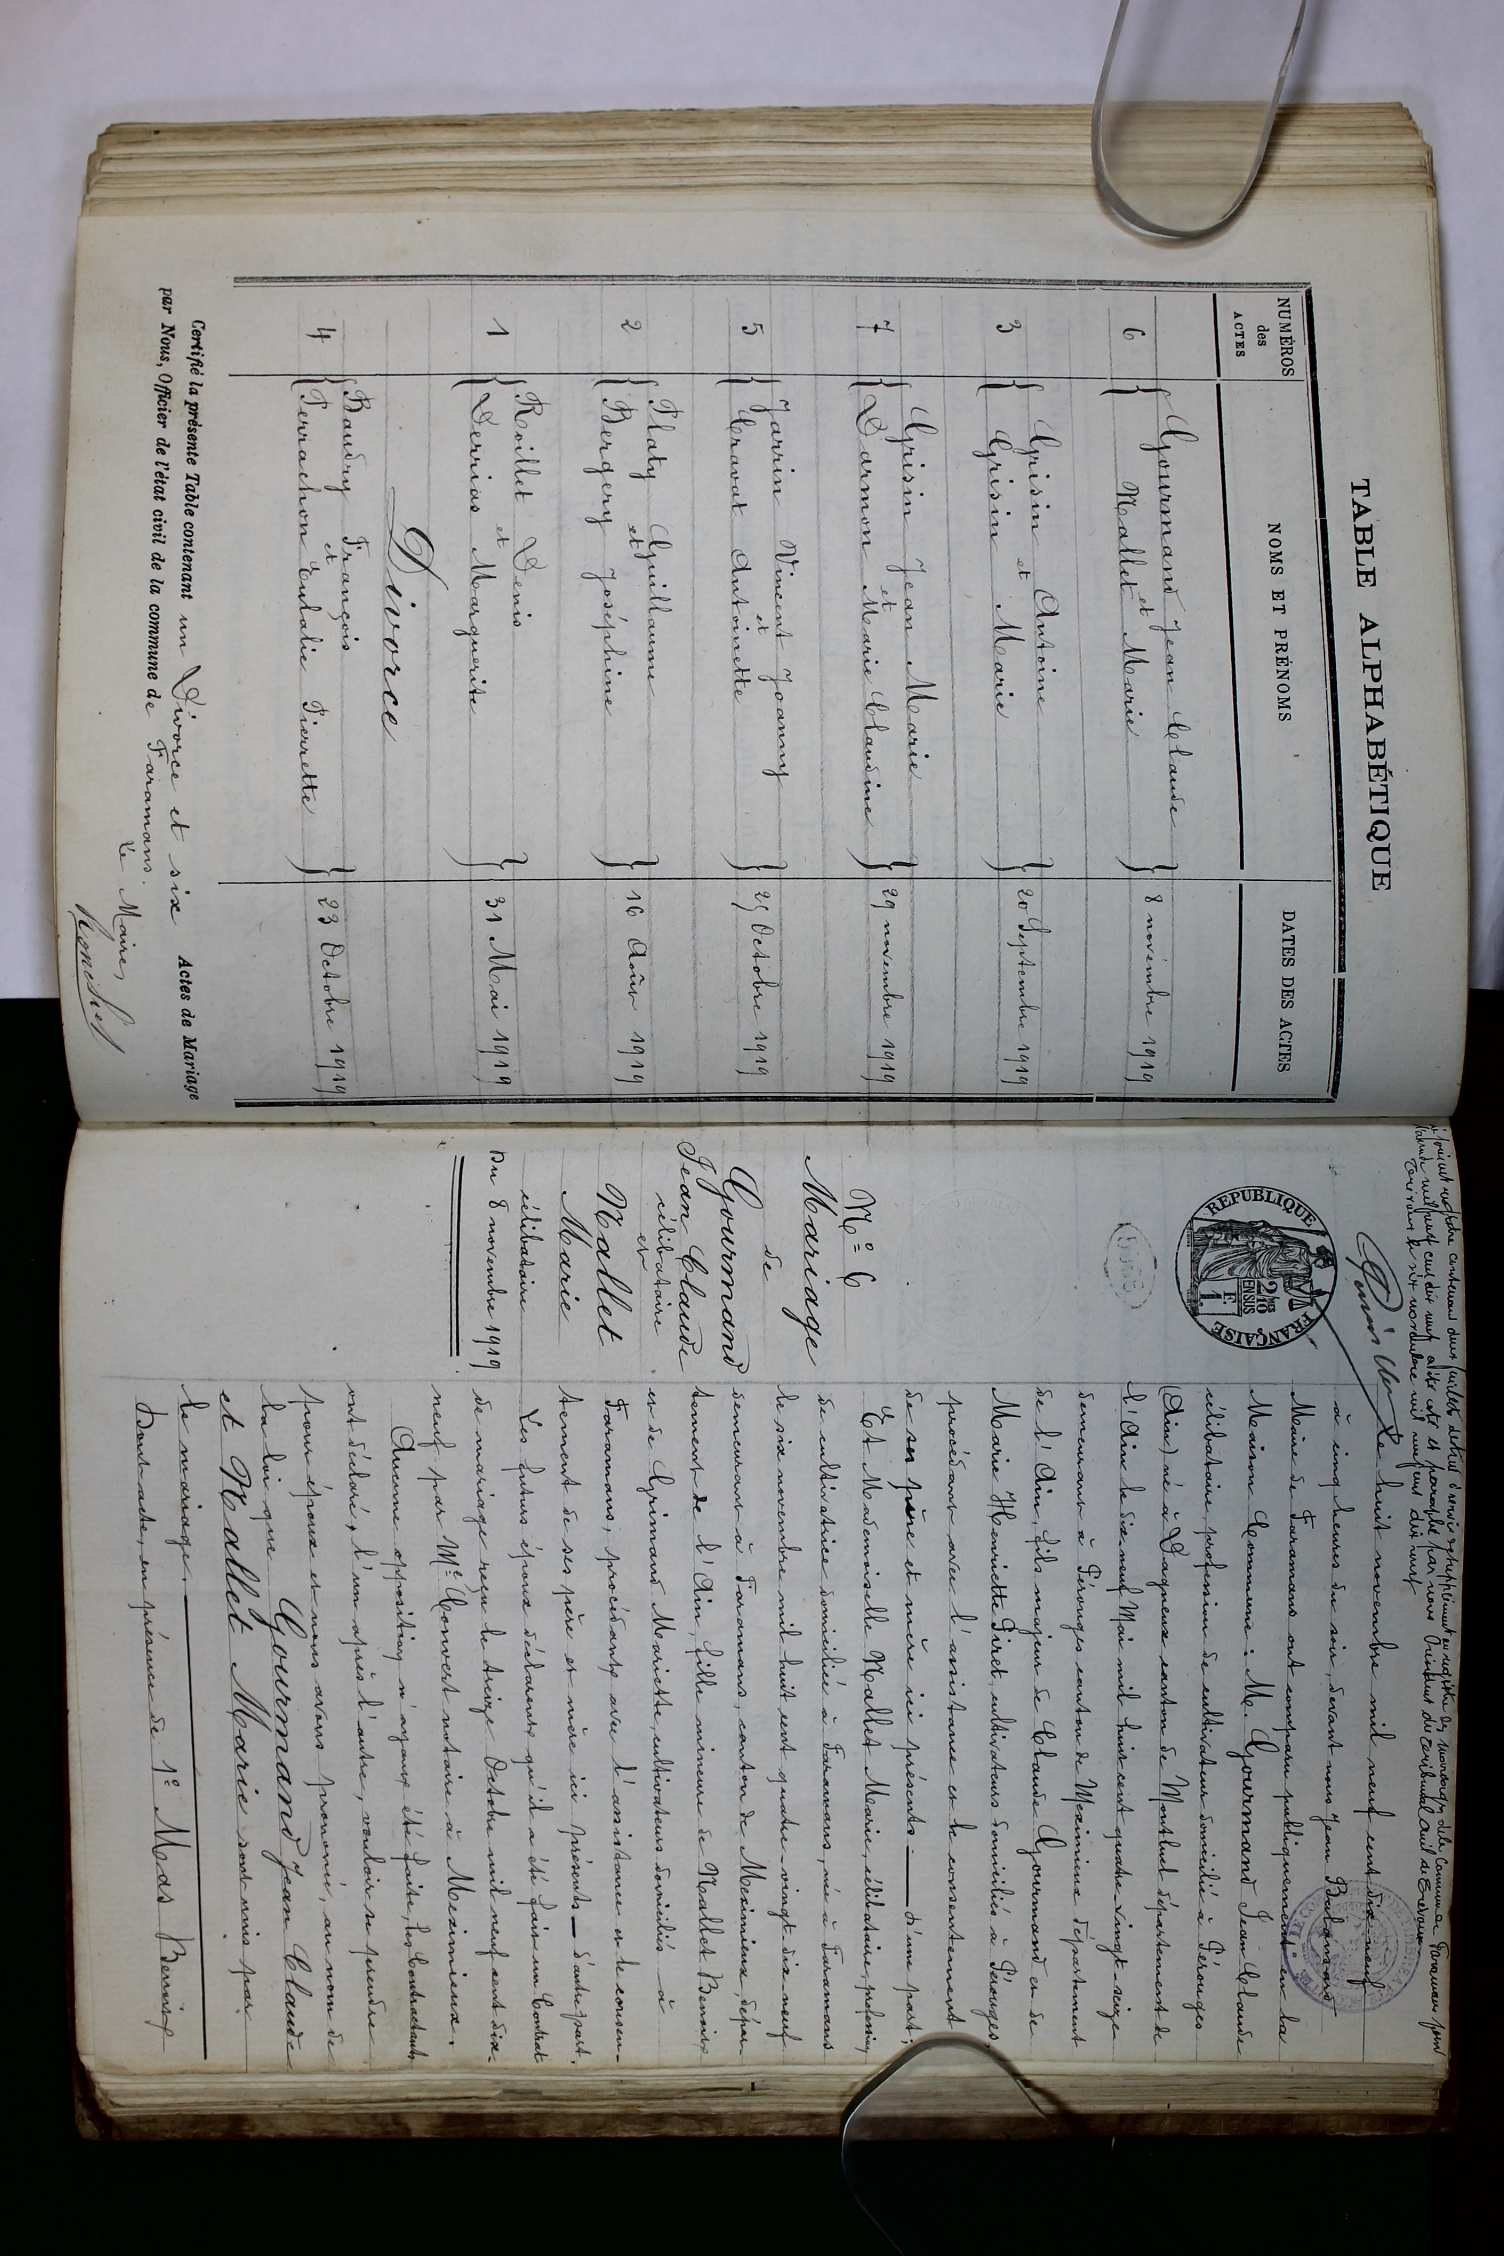 TABLE ALPHABÉTIQUE
NUMÉROS des ACTES
NOMS ET PRÉNOMS
DATES DES ACTES
6 Gourmand Jean Claude et Mallet Marie 8 novembre 1919
3 Grisin Antoine et Grisin Marie 20 Septembre 1919
7 Grisin Jean Marie et Darmon Marie Claudine 29 novembre 1919
5 Jarrin Vincent Joanny et Cravat Antoinette 25 Octobre 1919
2 Platy Guillaume et Bergery Joséphine 16 Août 1919
1 Roillet Denis et Derrias Marguerite 31 Mai 1919
Divorce
4 Baudry François et Perrachon Eulalie Pierrette 23 Octobre 1919
Certifié la présente Table contenant un Divorce et six Actes de Mariage
par Nous, Officier de l'état civil de la commune de Faramans.
Le Maire,
contenant deux feuillets destiné à servir de supplément au registre des mariages de la commune de Faramans pour
l'année mil neuf cent dix neuf a été coté et paraphé par nous Président du Tribunal Civil de Trévoux
Trévoux le six novembre mil neuf cent dix neuf
RÉPUBLIQUE FRANÇAISE
2/10 EN SUS
1 F.
N° 6
Mariage
de
Gourmand
Jean Claude
célibataire
et
Mallet
Marie
célibataire
Du 8 novembre 1919
Le huit novembre mil neuf cent dix-neuf
à cinq heures du soir, devant nous Jean
Maire de Faramans ont comparu publiquement en la
Maison Commune : M. Gourmand Jean Claude
célibataire, profession de cultivateur domicilié à Pérouges
(Ain) né à Dagneux canton de Montluel département de
l'Ain le dix-neuf Mai mil huit cent quatre-vingt-seize
demeurant à Pérouges canton de Meximieux département
de l'Ain, fils majeur de Claude Gourmand et de
Marie Henriette Piret, cultivateurs domiciliés à Pérouges,
procédant avec l'assistance et le consentement
de ses père et mère ici présents — d'une part;
Et Mademoiselle Mallet Marie, célibataire, profession
de cultivatrice domiciliée à Faramans, née à Faramans
le six novembre mil huit cent quatre-vingt-dix-neuf
demeurant à Faramans, canton de Meximieux, dépar-
tement de l'Ain, fille mineure de Mallet Benoît
et de Grimand Mariette, cultivateurs domiciliés à
Faramans, procédants avec l'assistance et le consen-
tement de ses père et mère ici présents — d'autre part.
Les futurs époux déclarent qu'il a été fait un Contrat
de mariage reçu le treize Octobre mil neuf cent dix-
neuf par Me Convert notaire à Meximieux.
Aucune opposition n'ayant été faite, les Contractants
ont déclaré, l'un après l'autre, vouloir se prendre
pour époux et nous avons prononcé, au nom de
la loi que Gourmand Jean Claude
et Mallet Marie sont unis par
le mariage.
Dont acte, en présence de 1° Mas Benoît